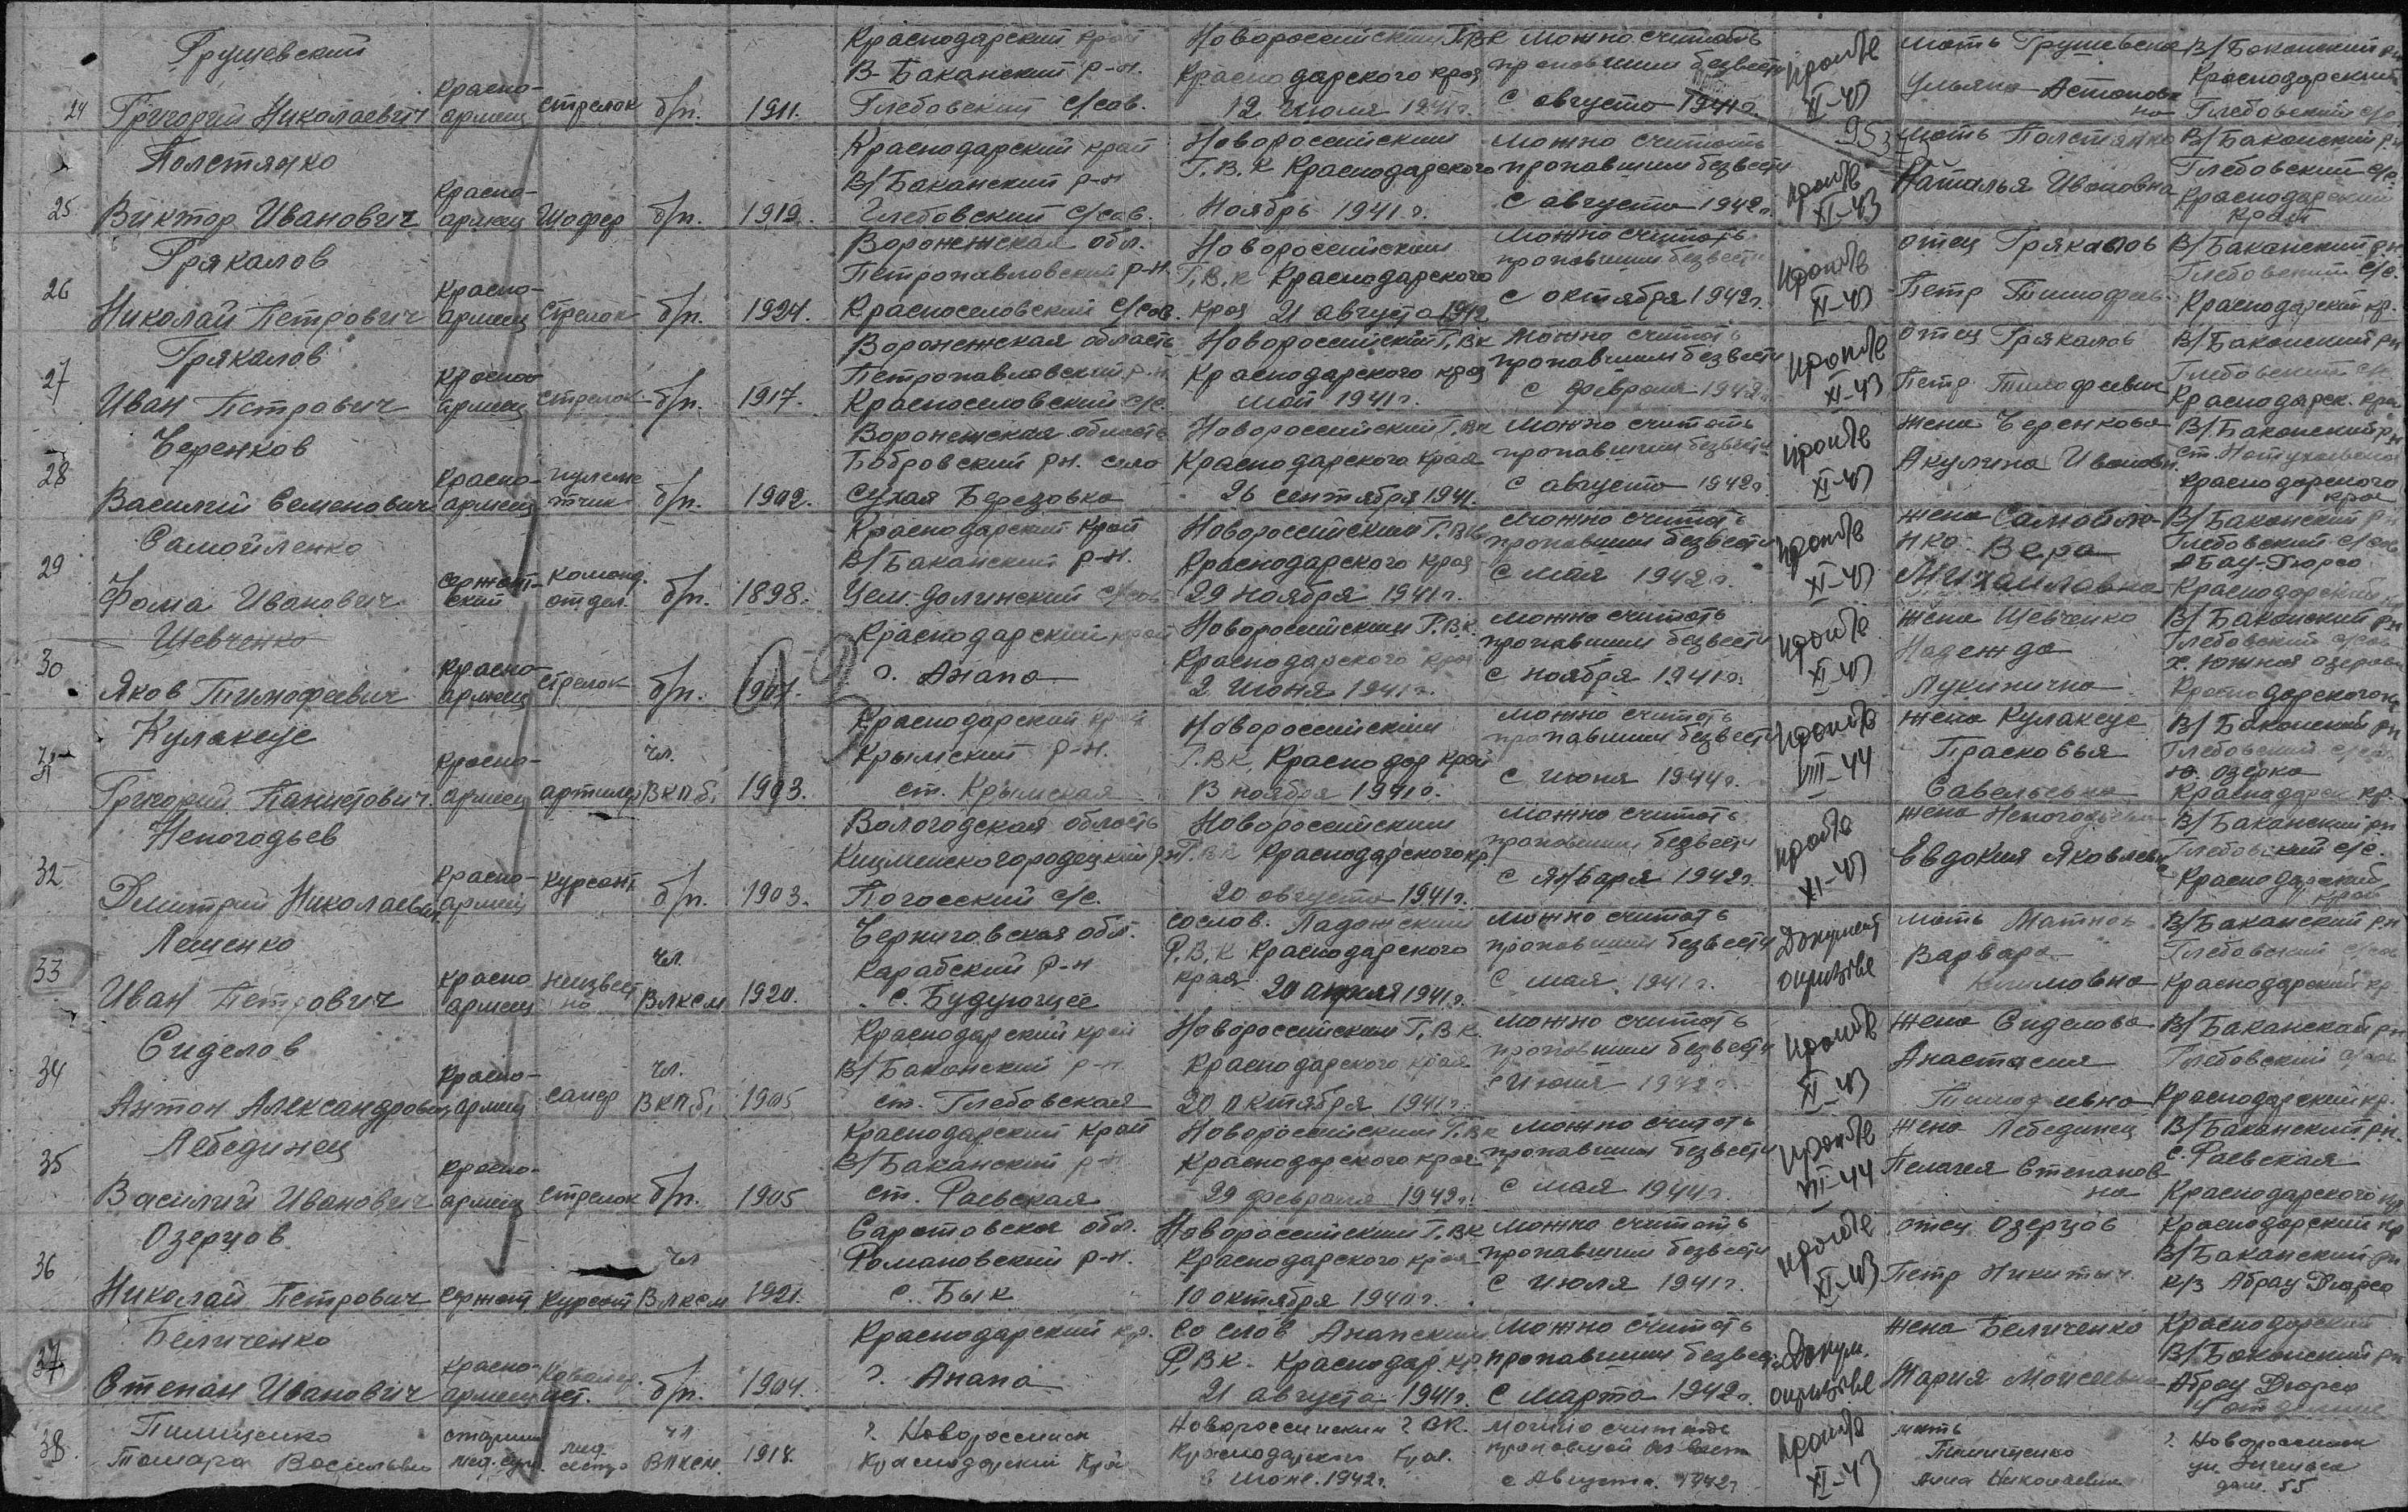 24
Грушевский
Григорий Николаевич
Красно-
армеец
стрелок
б/п.
1911.
Краснодарский край
В-Баканский р-н.
Глебовский с/сов.
Новороссийским Г.ВК
Краснодарского края
12 июля 1941г.
можно считать
пропавшим безвести
с августа
XI-43
мать Грушевская
Ульяна
В/Баканский рн
Краснодарский
Глебовский с/с
25
Полстянко
Виктор Иванович
Красно-
армеец
Шофер
б/п.
1919.
Краснодарский край
В/Баканский р-н
Глебовский с/сов.
Новороссийским
Г.В.К Краснодарского
Ноябрь 1941г.
можно считать
пропавшим безвести
с августа 1942г.
XI-43
мать Полстянко
Наталья Ивановна
В/Баканский рн
Глебовский с/с.
Краснодарский
край
26
Грякалов
Николай Петрович
Красно-
армеец
стрелок
б/п.
1924.
Воронежская обл.
Петропавловский р-н.
Красноселовский с/сов.
Новороссийским
Г.В.К Краснодарского
края 21 августа 1942
можно считать
пропавшим безвести
с октября 1942г.
XI-43
отец Грякалов
Петр
В/Баканский рн
Глебовский с/с.
Краснодарский кр.
27
Грякалов
Иван Петрович
Красно-
армеец
стрелок
б/п.
1917.
Воронежская область
Петропавловский р-н
Красноселовский с/с.
Новороссийский Г.ВК
Краснодарского края
май 1941г.
можно считать
пропавшим безвести
с февраля 1942г.
XI-43
отец Грякалов
Петр Тимофеевич
В/Баканский рн
Глебовский с/с
Краснодарск. края
28
Черенков
Василий Семенович
Красно-
армеец
пулеме
тчик
б/п.
1902.
Воронежская область
Бобровский рн. село
Сухая Березовка
Новороссийский Г.ВК
Краснодарского края
26 сентября 1941.
можно считать
пропавшим безвести
с августа 1942г.
XI-43
жена Черенкова
Акулина Ивановн.
В/Баканский рн
ст. Натухаевская
Краснодарского
края
29
Самойленко
Фома Иванович
сержант-
ский
команд.
отдел.
б/п.
1898.
Краснодарский край
В/Баканский р-н.
Цем-Долинский с/сов
Новороссийским Г.ВК
Краснодарского края
29 ноября 1941г.
можно считать
пропавшим безвести
с мая 1942г.
XI-43
жена Самойле-
нко Вера
Михайловна
В/Баканский рн
Глебовский с/сов
Абрау-Дюрсо
Краснодарский
30
Шевченко
Яков Тимофеевич
Красно-
армеец
стрелок
б/п.
Краснодарский край
г. Анапа
Новороссийским Г.ВК.
Краснодарского края
2 июня 1941г.
можно считать
пропавшим безвести
с ноября 1941г.
XI-43
жена Шевченко
Надежда
Лукинична
В/Баканский рн
Глебовский с/сов
Краснодарского
31
Кулаксус
Григорий
Красно-
армеец
артилер
чл.
ВКП.б.
1903.
Краснодарский край
Крымский р-н.
ст. Крымская
Новороссийским
Г.ВК. Краснодар край
13 ноября 1941г.
можно считать
пропавшим безвести
с июня 1944г.
VIII-44
жена Кулаксус
Прасковья
Савельевна
В/Баканский рн
Глебовский с/сов
Ю. Озерка
Краснодарск кр.
32
Непогодьев
Дмитрий Николаевич
Красно-
армеец
курсант
б/п.
1903.
Вологодская область
Погосский с/с.
Новороссийским
Г.ВК Краснодарского кр.
20 августа 1941г.
можно считать
пропавшим безвести
с января 1942г.
XI-43
жена Непогодьева
Евдокия Яковлевна
В/Баканский рн
Глебовский с/с.
Краснодарский
край
33
Лещенко
Иван Петрович
Красно
армеец
неизвест
но
чл.
ВЛКСМ
1920.
Черниговская обл.
Карабский р-н
с. Будующее
со слов. Ладожский
Р.В.К Краснодарского
края 20 апреля 1941г.
можно считать
пропавшим безвести
с мая 1941г.
Документ
мать
Варвара
Климовна
В/Баканский рн
Глебовский с/сов
Краснодарский кр
34
Сиделов
Антон Александрович
Красно-
армеец
сапер
чл.
ВКП.б,
1905
Краснодарский край
В/Баканский р-н
ст. Глебовская
Новороссийским Г.ВК.
Краснодарского края
20 октября 1941г.
можно считать
пропавшим безвести
с июня 1942г.
XI-43
жена Сиделова
Анастасия
В/Баканский рн
Глебовский с/сов
Краснодарский кр.
35
Лебединец
Василий Иванович
Красно-
армеец
стрелок
б/п.
1905
Краснодарский край
В/Баканский р-н
ст. Раевская
Новороссийский Г.ВК
Краснодарского края
29 февраля 1942г.
можно считать
пропавшим безвести
с мая 1944г.
VIII-44
жена Лебединец
Пелагея Степанов-
на
В/Баканский рн.
с. Раевская
Краснодарского кр
36
Озерцов
Николай Петрович
сержант
курсант
чл
ВЛКСМ
1921.
Саратовская обл.
Романовский р-н.
с. Бык
Новороссийский Г.ВК
Краснодарского края
10 октября 1940г.
можно считать
пропавшим безвести
с июля 1941г.
XI-43
отец Озерцов
Петр Никитич.
Краснодарский кр
В/Баканский рн
Абрау Дюрсо
37
Беличенко
Степан Иванович
Красно-
армеец
б/п.
1904.
Краснодарский кр.
г. Анапа
Со слов Анапский
РВК. Краснодар кр
21 августа 1941г.
можно считать
пропавшим безвести
с марта 1942г.
Докум.
жена Беличенко
Мария Моисеевна
Краснодарский
В/Баканский рн
Абрау Дюрсо
38
Пилищенко
Тамара Васильевн
старши
мед.
сестра
чл
ВЛКСМ.
1918.
г. Новороссийск
Краснодарский край
Новороссийский Г ВК.
Краснодарского края.
июне. 1942г.
можно считать
пропавшей
с августа. 1942г
XI-43
мать
Пилищенко
Анна Николаевна
г. Новороссийск
ул.
дом. 55